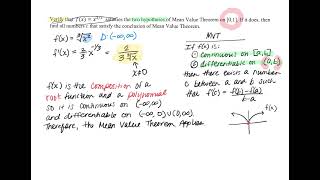 Verify that f(x) = x^(2/3) satisfies the two hypotheses of Mean Value Theorem on [0,1]. If it does, then
find all numbers that satisfy the conclusion of Mean Value Theorem.
f(x) = ∛x² D: (-∞,∞)
f'(x) = 2/3 x^(-1/3) = 2/(3∛x)
x≠0
f(x) is the composition of a
root function and a polynomial
so it is continuous on (-∞,∞)
and differentiable on (-∞,0)∪(0,∞).
Therefore, the Mean Value Theorem Applies
MVT
If f(x) is:
① continuous on [a,b]
② differentiable on (a,b)
then there exists a number
c between a and b such
that f'(c) = (f(b)-f(a))/(b-a)
f(x)